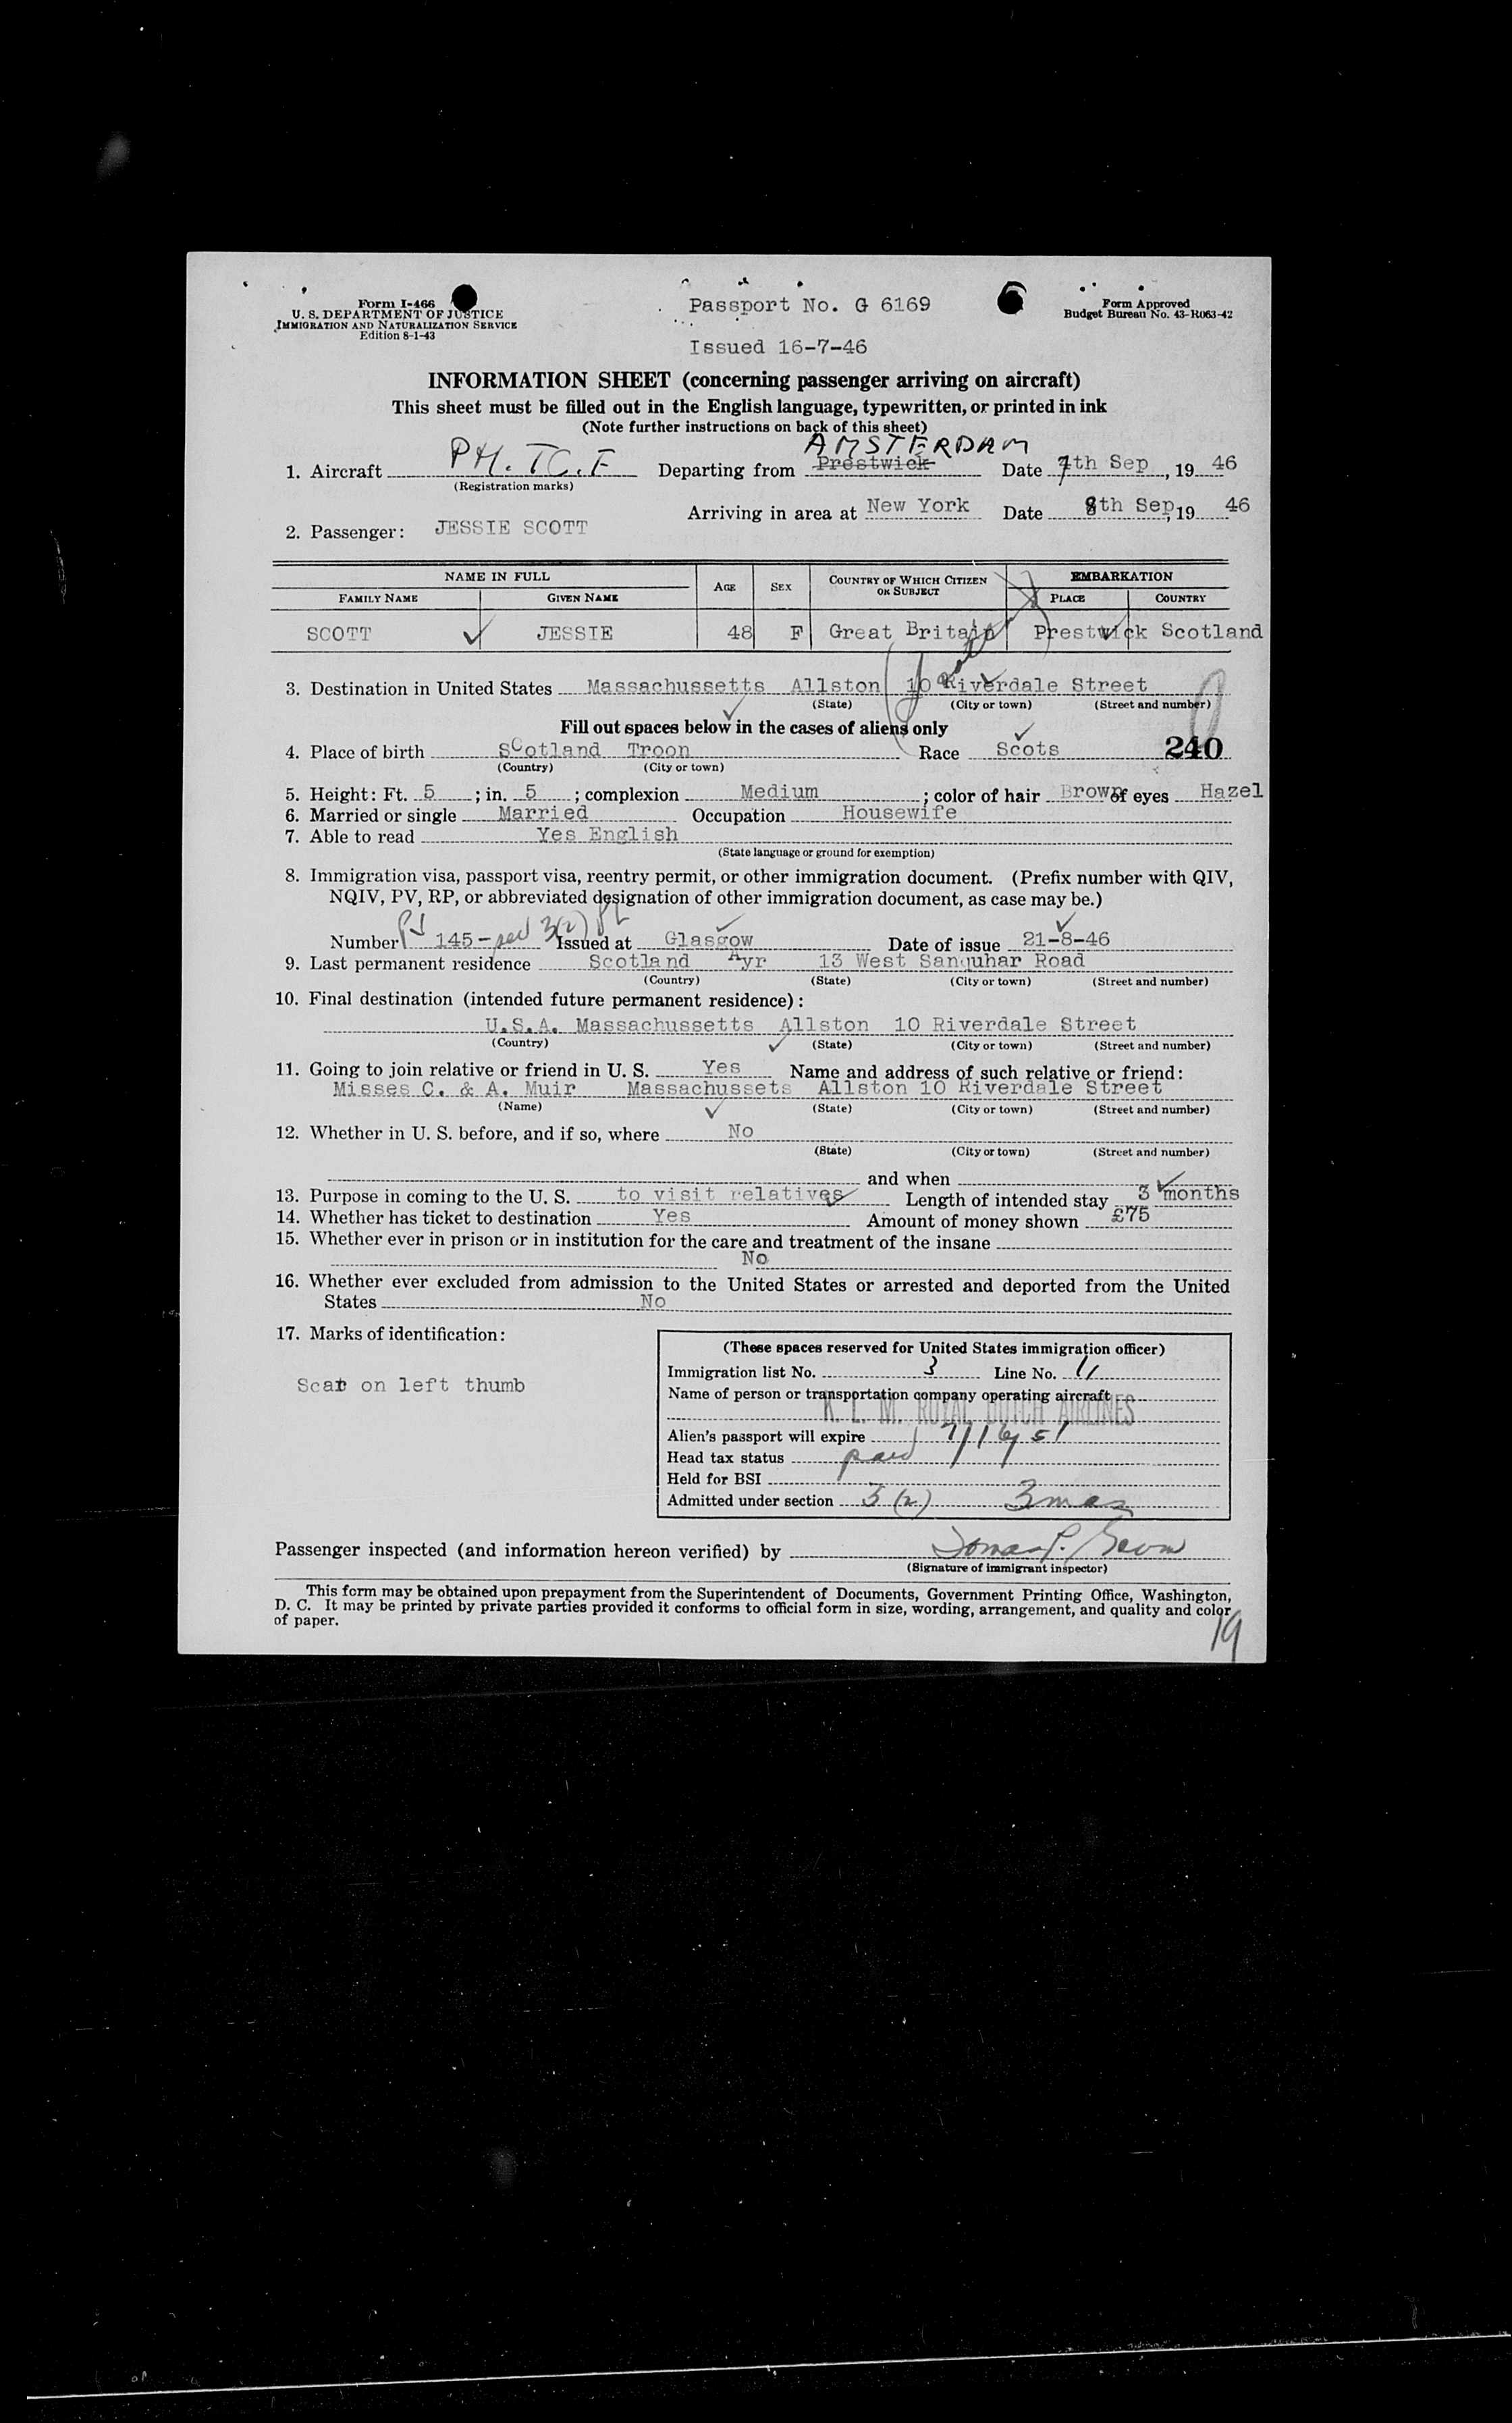 Form I-466
U. S. DEPARTMENT OF JUSTICE
IMMIGRATION AND NATURALIZATION SERVICE
Edition 8-1-43
Passport No. G 6169
Issued 16-7-46
Form Approved
Budget Bureau No. 43-R063-42
INFORMATION SHEET (concerning passenger arriving on aircraft)
This sheet must be filled out in the English language, typewritten, or printed in ink
(Note further instructions on back of this sheet)
AMSTERDAM
1. Aircraft PH. TC. F Departing from Prestwick Date 7th Sep, 19 46
(Registration marks)
Arriving in area at New York Date 8th Sep, 19 46
2. Passenger: JESSIE SCOTT
NAME IN FULL AGE SEX COUNTRY OF WHICH CITIZEN OR SUBJECT EMBARKATION
FAMILY NAME GIVEN NAME PLACE COUNTRY
SCOTT JESSIE 48 F Great Britain Prestwick Scotland
3. Destination in United States Massachussetts Allston 10 Riverdale Street
(State) (City or town) (Street and number)
Fill out spaces below in the cases of aliens only
4. Place of birth Scotland Troon Race Scots 240
(Country) (City or town)
5. Height: Ft. 5; in. 5; complexion Medium; color of hair Brown of eyes Hazel
6. Married or single Married Occupation Housewife
7. Able to read Yes English
(State language or ground for exemption)
8. Immigration visa, passport visa, reentry permit, or other immigration document. (Prefix number with QIV,
NQIV, PV, RP, or abbreviated designation of other immigration document, as case may be.)
Number 145- 3(2) Issued at Glasgow Date of issue 21-8-46
9. Last permanent residence Scotland Ayr 13 West Sanquhar Road
(Country) (State) (City or town) (Street and number)
10. Final destination (intended future permanent residence):
U.S.A. Massachussetts Allston 10 Riverdale Street
(Country) (State) (City or town) (Street and number)
11. Going to join relative or friend in U. S. Yes Name and address of such relative or friend:
Misses C. & A. Muir Massachussets Allston 10 Riverdale Street
(Name) (State) (City or town) (Street and number)
12. Whether in U. S. before, and if so, where No
(State) (City or town) (Street and number)
and when
13. Purpose in coming to the U. S. to visit relatives Length of intended stay 3 months
14. Whether has ticket to destination Yes Amount of money shown £75
15. Whether ever in prison or in institution for the care and treatment of the insane
No
16. Whether ever excluded from admission to the United States or arrested and deported from the United
States No
17. Marks of identification:
Scar on left thumb
(These spaces reserved for United States immigration officer)
Immigration list No. 3 Line No. 11
Name of person or transportation company operating aircraft
K. L. M. ROYAL DUTCH AIRLINES
Alien's passport will expire 7/16/51
Head tax status paid
Held for BSI
Admitted under section 3 (2) 3 mos
Passenger inspected (and information hereon verified) by
(Signature of immigrant inspector)
This form may be obtained upon prepayment from the Superintendent of Documents, Government Printing Office, Washington,
D. C. It may be printed by private parties provided it conforms to official form in size, wording, arrangement, and quality and color
of paper.
19